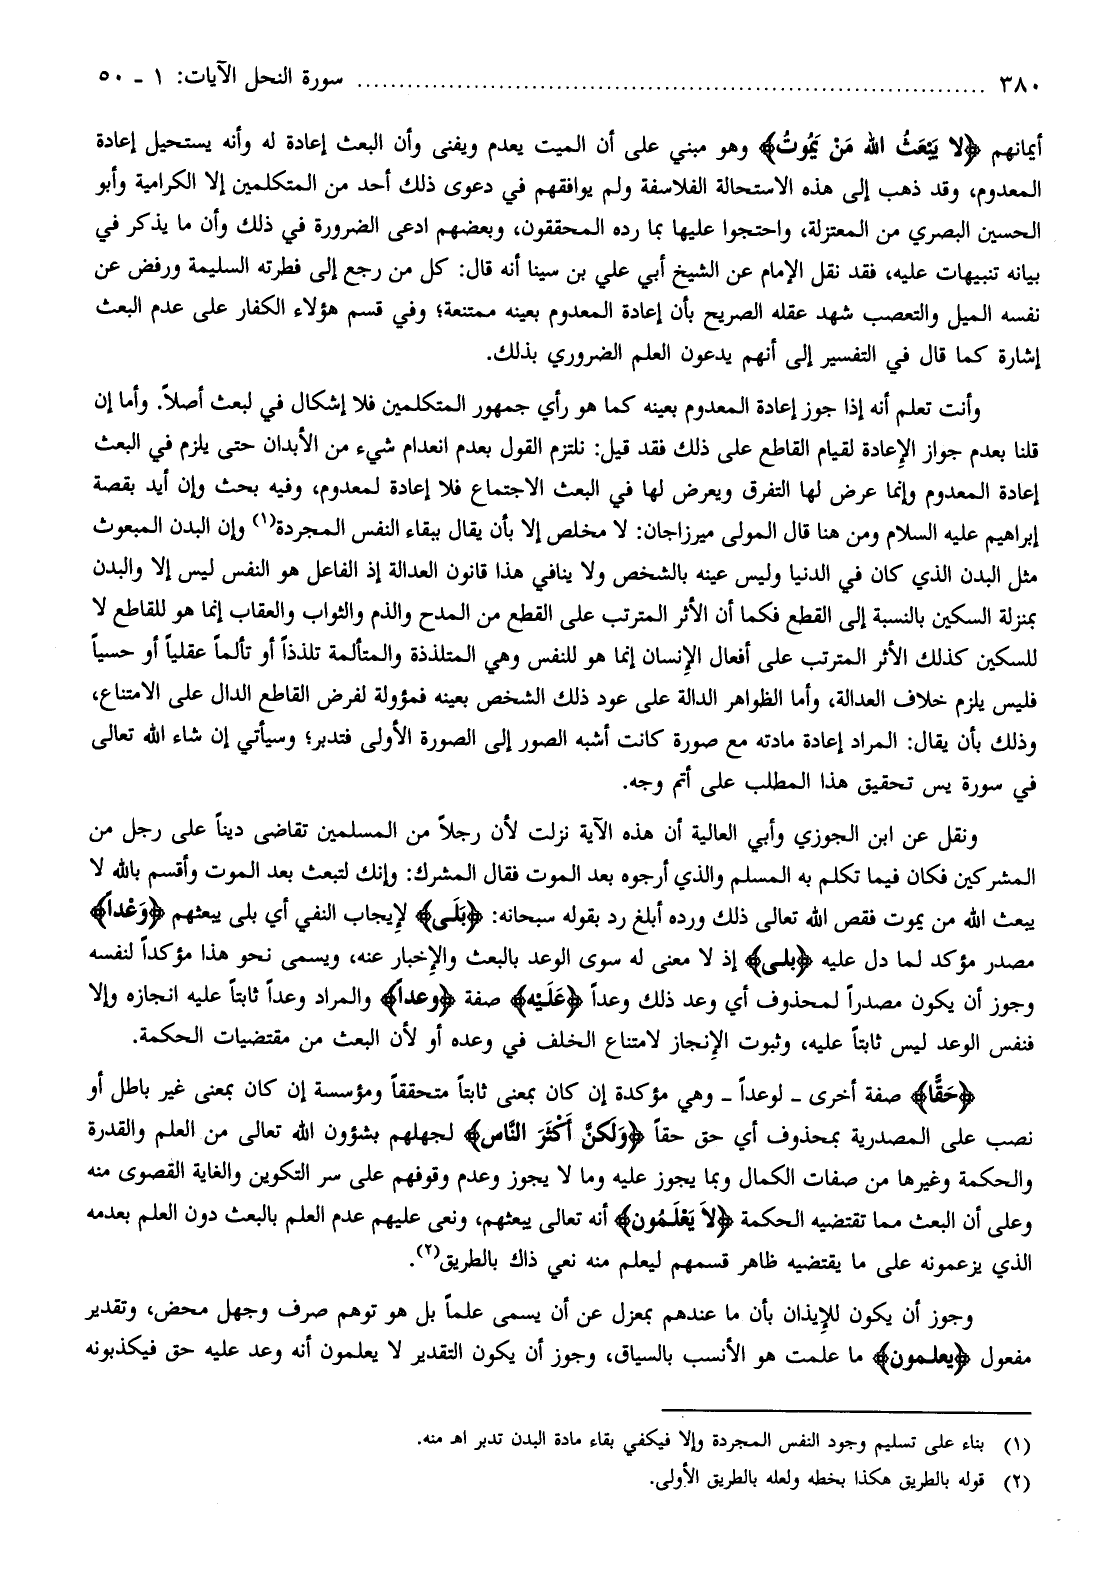 ٣٨٠ ........................................ سورة النحل الآيات: ١ ـ ٥٠
أيمانهم ﴿لا يَبْعَثُ الله مَنْ يَمُوتُ﴾ وهو مبني على أن الميت يعدم ويفنى وأن البعث إعادة له وأنه يستحيل إعادة
المعدوم، وقد ذهب إلى هذه الاستحالة الفلاسفة ولم يوافقهم في دعوى ذلك أحد من المتكلمين إلا الكرامية وأبو
الحسين البصري من المعتزلة، واحتجوا عليها بما رده المحققون، وبعضهم ادعى الضرورة في ذلك وأن ما يذكر في
بيانه تنبيهات عليه، فقد نقل الإمام عن الشيخ أبي علي بن سينا أنه قال: كل من رجع إلى فطرته السليمة ورفض عن
نفسه الميل والتعصب شهد عقله الصريح بأن إعادة المعدوم بعينه ممتنعة؛ وفي قسم هؤلاء الكفار على عدم البعث
إشارة كما قال في التفسير إلى أنهم يدعون العلم الضروري بذلك.
وأنت تعلم أنه إذا جوز إعادة المعدوم بعينه كما هو رأي جمهور المتكلمين فلا إشكال في لبعث أصلاً. وأما إن
قلنا بعدم جواز الإعادة لقيام القاطع على ذلك فقد قيل: نلتزم القول بعدم انعدام شيء من الأبدان حتى يلزم في البعث
إعادة المعدوم وإنما عرض لها التفرق ويعرض لها في البعث الاجتماع فلا إعادة لمعدوم، وفيه بحث وإن أيد بقصة
إبراهيم عليه السلام ومن هنا قال المولى ميرزاجان: لا مخلص إلا بأن يقال ببقاء النفس المجردة(١) وإن البدن المبعوث
مثل البدن الذي كان في الدنيا وليس عينه بالشخص ولا ينافي هذا قانون العدالة إذ الفاعل هو النفس ليس إلا والبدن
بمنزلة السكين بالنسبة إلى القطع فكما أن الأثر المترتب على القطع من المدح والذم والثواب والعقاب إنما هو للقاطع لا
للسكين كذلك الأثر المترتب على أفعال الإنسان إنما هو للنفس وهي المتلذذة والمتألمة تلذذاً أو تألماً عقلياً أو حسياً
فليس يلزم خلاف العدالة، وأما الظواهر الدالة على عود ذلك الشخص بعينه فمؤولة لفرض القاطع الدال على الامتناع،
وذلك بأن يقال: المراد إعادة مادته مع صورة كانت أشبه الصور إلى الصورة الأولى فتدبر؛ وسيأتي إن شاء الله تعالى
في سورة يس تحقيق هذا المطلب على أتم وجه.
ونقل عن ابن الجوزي وأبي العالية أن هذه الآية نزلت لأن رجلاً من المسلمين تقاضى ديناً على رجل من
المشركين فكان فيما تكلم به المسلم والذي أرجوه بعد الموت فقال المشرك: وإنك لتبعث بعد الموت وأقسم بالله لا
يبعث الله من يموت فقص الله تعالى ذلك ورده أبلغ رد بقوله سبحانه: ﴿بَلَى﴾ لإيجاب النفي أي بلى يبعثهم ﴿وَعْداً﴾
مصدر مؤكد لما دل عليه ﴿بلى﴾ إذ لا معنى له سوى الوعد بالبعث والإخبار عنه، ويسمى نحو هذا مؤكداً لنفسه
وجوز أن يكون مصدراً لمحذوف أي وعد ذلك وعداً ﴿عَلَيْه﴾ صفة ﴿وعداً﴾ والمراد وعداً ثابتاً عليه انجازه وإلا
فنفس الوعد ليس ثابتاً عليه، وثبوت الإنجاز لامتناع الخلف في وعده أو لأن البعث من مقتضيات الحكمة.
﴿حَقًّا﴾ صفة أخرى ـ لوعداً ـ وهي مؤكدة إن كان بمعنى ثابتاً متحققاً ومؤسسة إن كان بمعنى غير باطل أو
نصب على المصدرية بمحذوف أي حق حقاً ﴿وَلَكنَّ أَكْثَرَ النَّاس﴾ لجهلهم بشؤون الله تعالى من العلم والقدرة
والحكمة وغيرها من صفات الكمال وبما يجوز عليه وما لا يجوز وعدم وقوفهم على سر التكوين والغاية القصوى منه
وعلى أن البعث مما تقتضيه الحكمة ﴿لاَ يَعْلَمُون﴾ أنه تعالى يبعثهم، ونعى عليهم عدم العلم بالبعث دون العلم بعدمه
الذي يزعمونه على ما يقتضيه ظاهر قسمهم ليعلم منه نعي ذاك بالطريق(٢).
وجوز أن يكون للإيذان بأن ما عندهم بمعزل عن أن يسمى علماً بل هو توهم صرف وجهل محض، وتقدير
مفعول ﴿يعلمون﴾ ما علمت هو الأنسب بالسياق، وجوز أن يكون التقدير لا يعلمون أنه وعد عليه حق فيكذبونه
(١) بناء على تسليم وجود النفس المجردة وإلا فيكفي بقاء مادة البدن تدبر اهـ منه.
(٢) قوله بالطريق هكذا بخطه ولعله بالطريق الأولى.